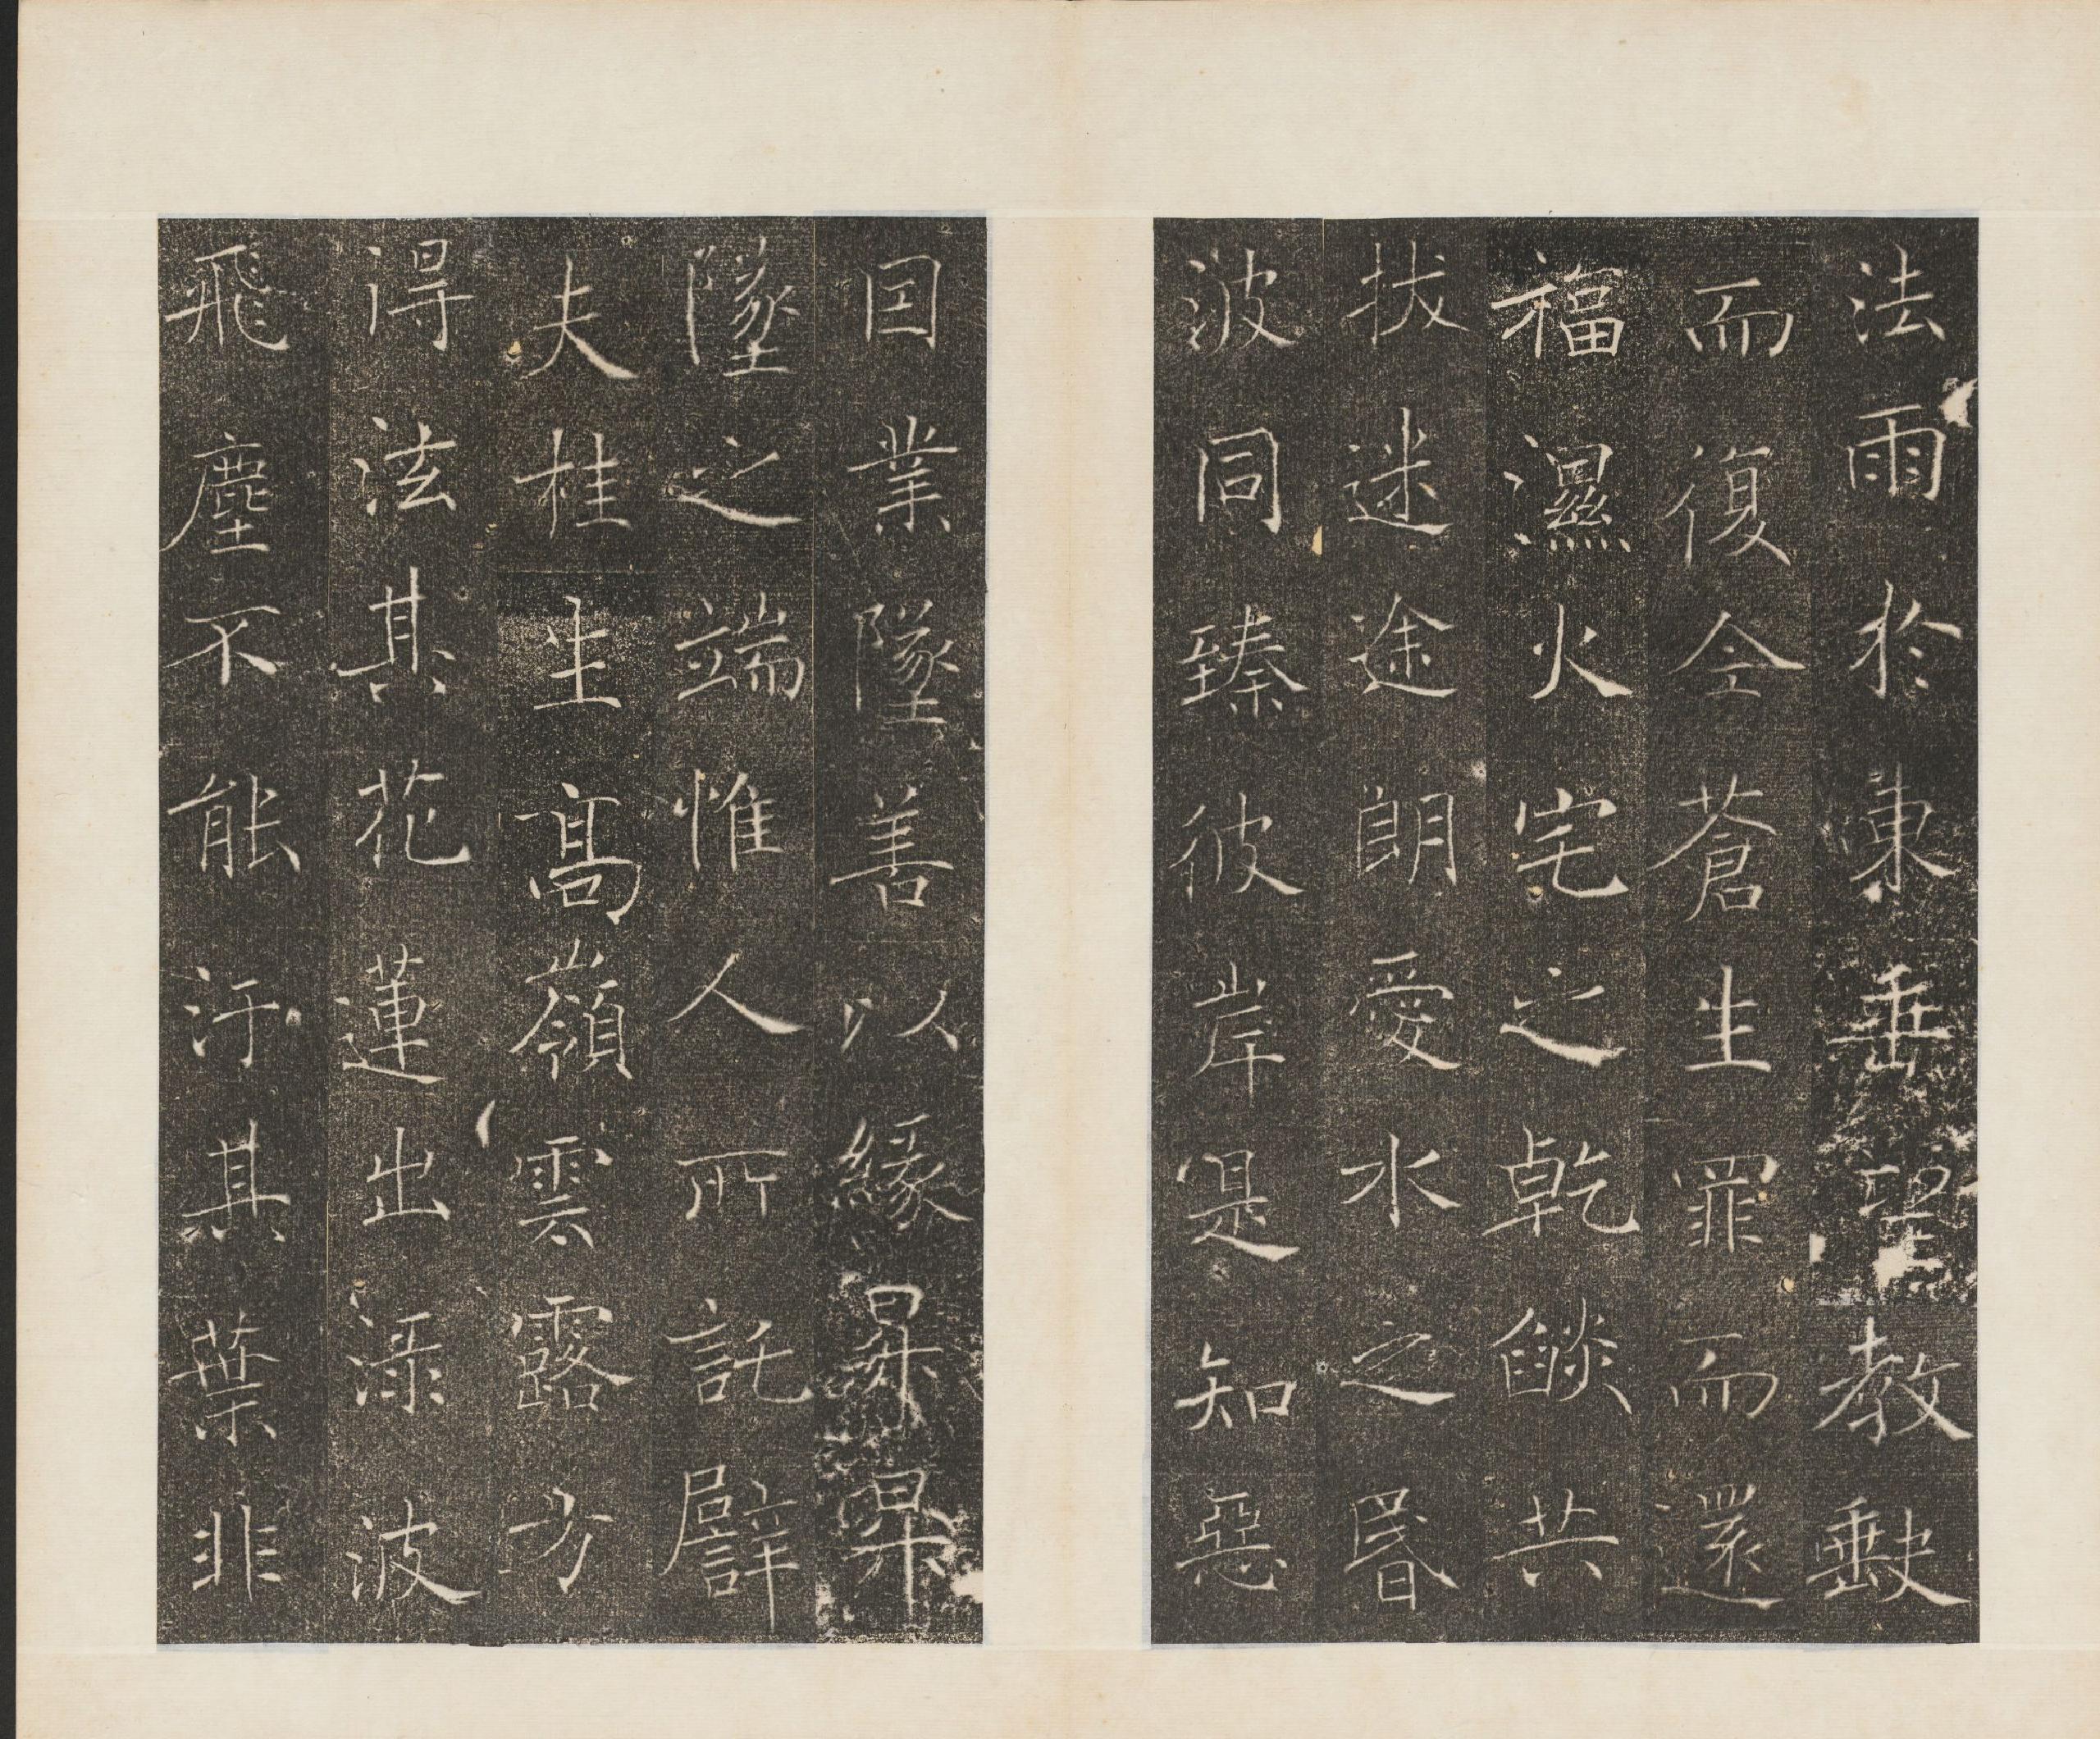 法雨於東垂聖教缺
而復全蒼生罪而還
福濕火宅之乾燄共
拔迷途朗愛水之昬
波同臻彼岸是知惡
因業墜善以緣昇昇
墜之端惟人所託譬
夫桂生高嶺雲露方
得泫其花蓮出淥波
飛塵不能汙其葉非